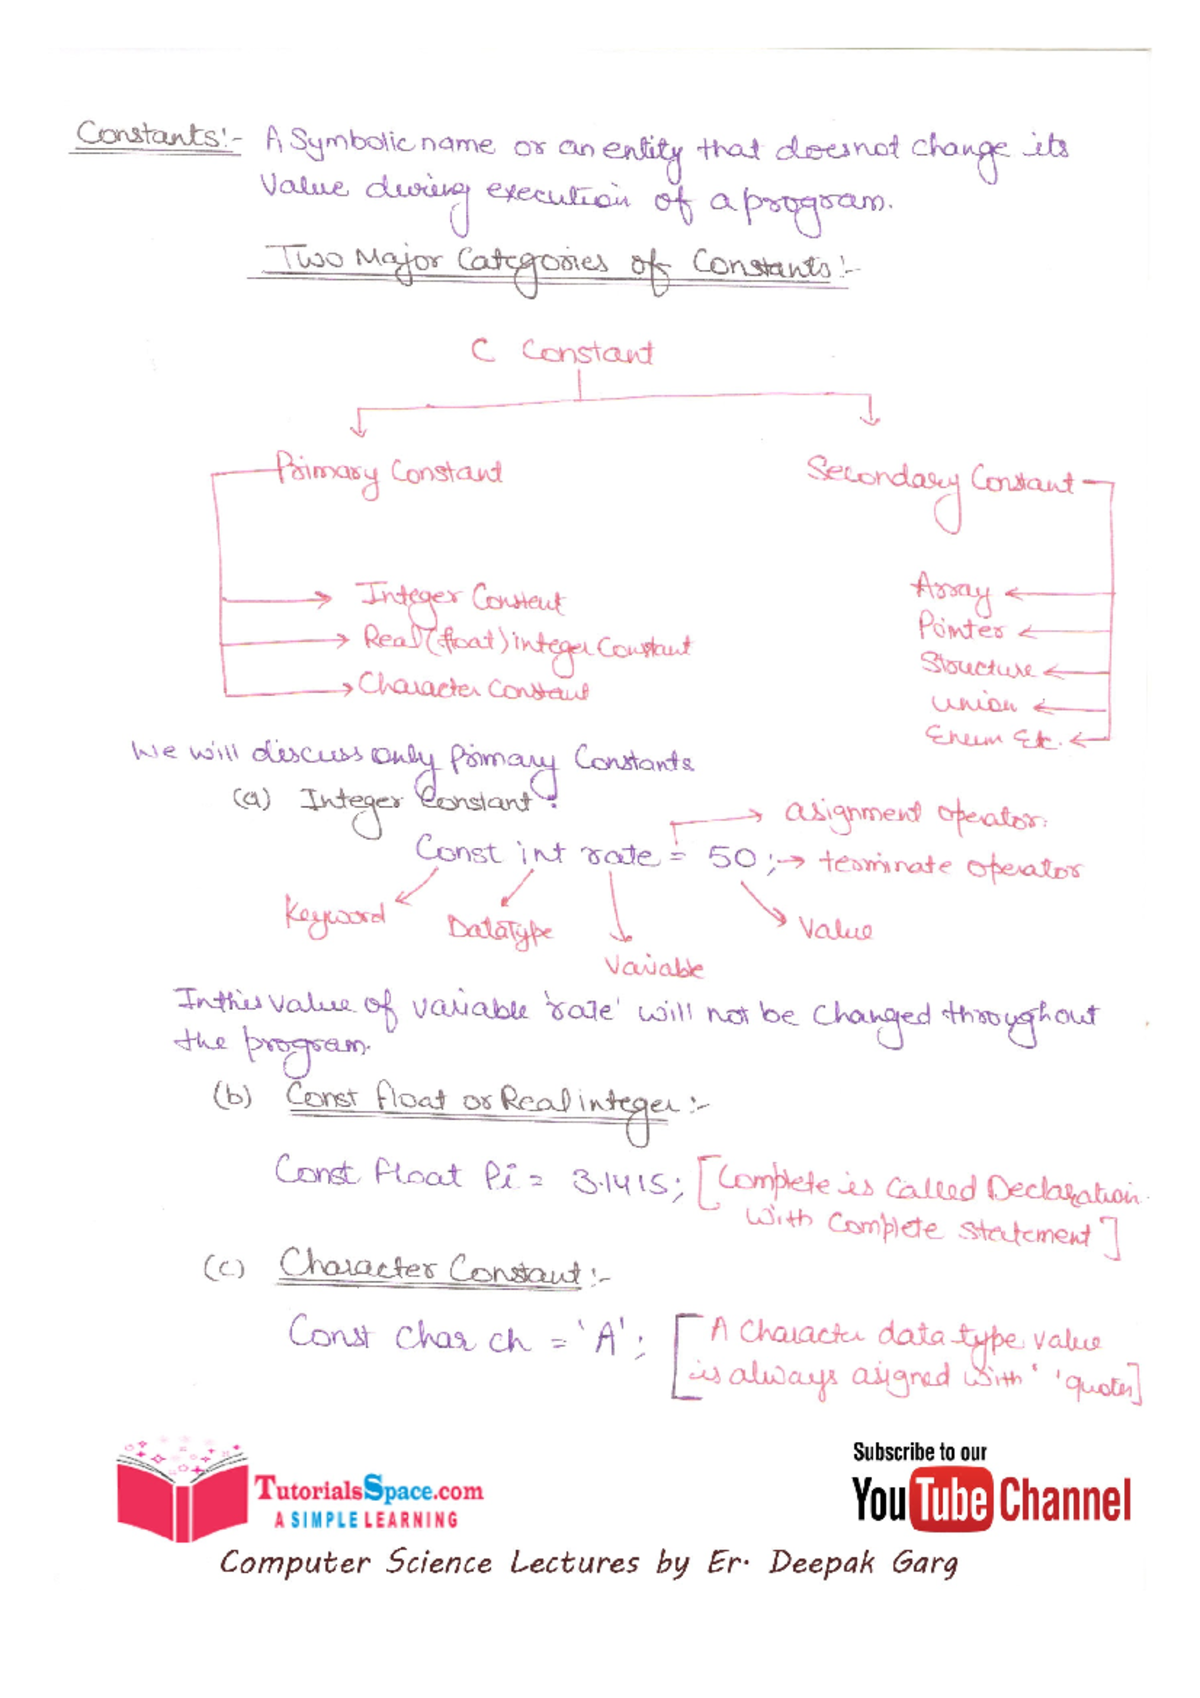 Constants:- A Symbolic name or an entity that doesnot change its
Value during execution of a program.
Two Major Categories of Constants:-
C Constant
Primary Constant
Secondary Constant
Integer Constant
Real (float) integer Constant
Character Constant
Array
Pointer
Structure
Union
Enum Etc.
We will discuss only primary Constants
(a) Integer Constant:
asignment operator.
Const int rate = 50 ; → terminate operator
Keyword
DataType
Value
Variable
In this value of variable 'rate' will not be changed throughout
the program.
(b) Const float or Real integer:-
Const float Pi = 3.1415; [Complete is called Declaration
with complete statement]
(c) Character Constant:-
Const char ch = 'A'; [A Character data type value
is always asigned with ' ' quotes]
TutorialsSpace.com
A SIMPLE LEARNING
Subscribe to our
YouTube Channel
Computer Science Lectures by Er. Deepak Garg